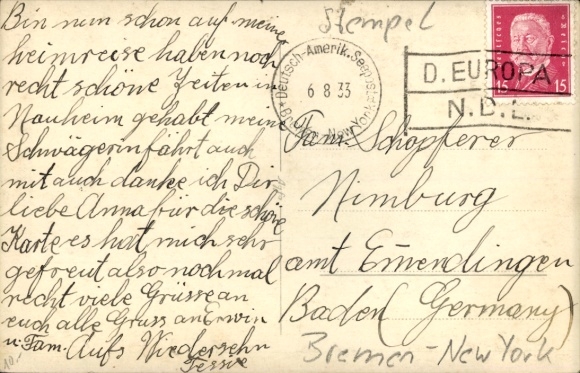 Bin nun schon auf meiner
heimreise haben noch
recht schöne Zeiten in
Nauheim gehabt meine
Schwägerin fährt auch
mit auch danke ich Dir
liebe Anna für die schöne
Karte es hat mich sehr
gefreut also noch mal
recht viele Grüsse an
euch alle Gruss an Erwin
u. Fam. Aufs Wiedersehn
Tessie
10.-
Stempel
Deutsch-Amerik. Seepost
6 8 33
Bremen-New York
D. EUROPA
N.D.L.
15 15
Fam. Schopferer
Nimburg
amt Emendingen
Baden (Germany)
Bremen - New York